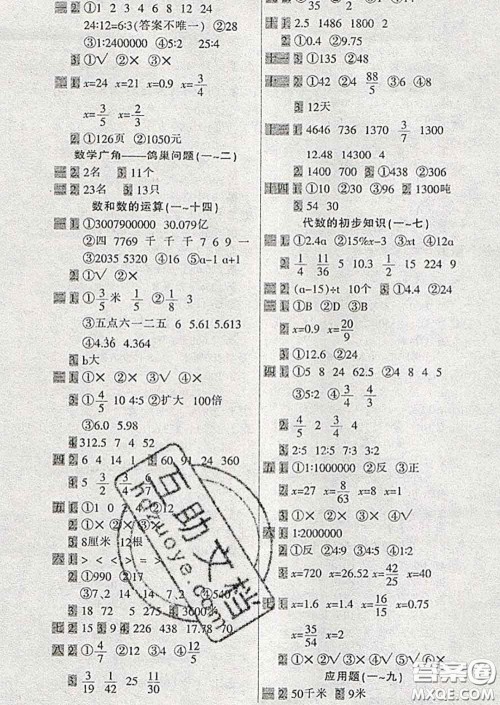 二 1 ①1 2 3 4 8 24
24:12=6:3(答案不唯一) ②28
③1:2400000 2 ①✓ ②✕ ③✕
1 x=24 x=21 x=0.9 x=3/4
x=3/5 x=8/9
2 ①126页 ②1050元
数学广角——鸽巢问题(一~二)
2 2名 3 11个
2 23名 3 13只
数和数的运算(一~十四)
一 1 ①3007900000 30.079亿
②四 7769 千 千 千 7 6 9 一
③2035 5320 ④16 ⑤a-1 a+1
二 1 ①3/5米 1/5 ②1/8 3
③五点六一二五 6 5.61 5.613
④4.36 4.364
3 b大
三 1 ①✕ ②✕ ③✓ ④✕
2 ①4/5 10 4÷5 ②扩大 100倍
③6.0 5.98
4 312.5 7 4 52
四 2 6 4 14 1 60 91 24 360
4 5
五 1 ①1 0 2 4 ②12
2 ①✕ ②✕ ③
3 8厘米 12根
六 1 > < < > = >
2 ①990 ②17
③7、2 14 ④540
3 18 72 5 275 4 3600米
七 2 15 3 9 4 226 498 17.78 70
八 2 ①4/7 ②12 ③4 ④12/5
3 3/19 1/42 25 11/30
2 ①✓ ②✕ ③✓
十一 1 2.5 1480 1800 2
2 ①0.4 ②9.75
2 ①42 ②88/5 ③6 ④8
3 12天
1 4646 736 1370 3/7 1300
12.48 8308 14.3
2 1400 3 ①430 ②68
十四 1 ①62 ②76 2 1300吨
3 54 30
代数的初步知识(一~七)
一 1 ①2.4a ②15%x-3 ③xt ④12a
2 1/4 11/36 0.5 10 4 15 224 9
二 2 (a-15)÷t 10个 3 ①9.4 ②24
三 1 ①B ②D ③D
x=0.9 x=20/9
3 ①12.6 ②24
四 1 ①5 8 24 62.5 ②3:8
③5:2 ④3/4 3/4
2 4/5 2 3/4
3 2:5 12:5 7:3 5:2
五 1 ①1:1000000 ②反 ③正
2 x=27 x=8/63 x=8 x=1
3 ①✕ ②✓ ③✕ ④✓
六 1 1:2000000
2 ①反 ②4:9 ③5 ④12
3 x=720 x=26.52 x=42/25 x=40
七 1 x=1.6 x=1.4 x=16/15 x=0.75
x=35/54 x=2
2 ①✕ ②✓ ③✓ ④✕ ⑤✓ ⑥✕
应用题(一~九)
一 2 50千米
互助文档
hdzuoye.com
答案圈
MXQE.COM